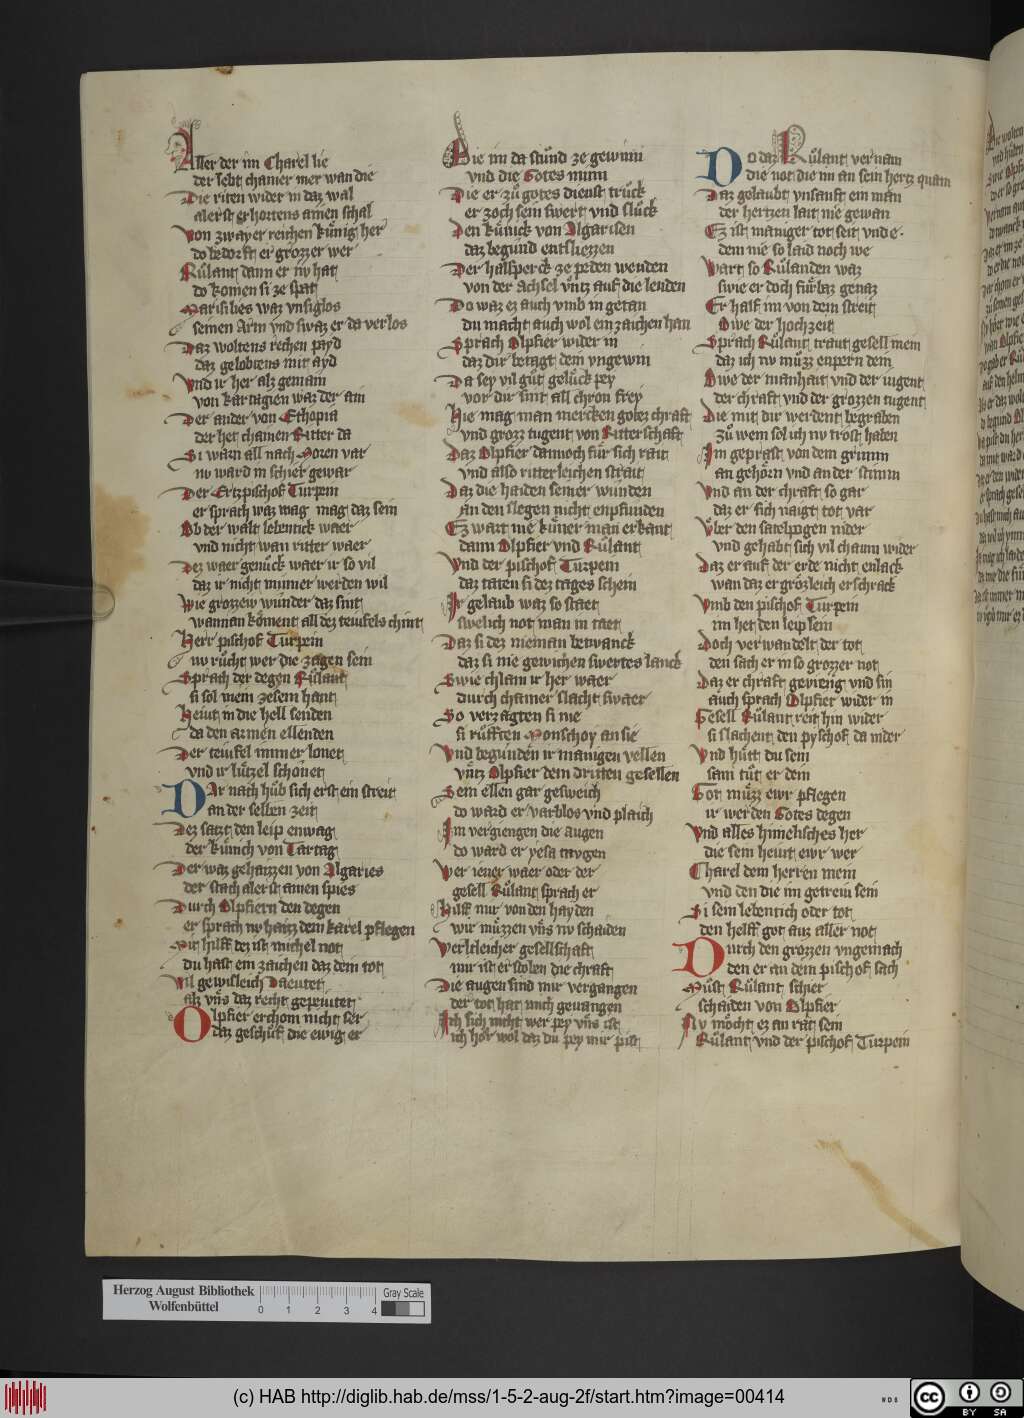 Aller der im Charel lie
der lebt chainer mer wan die
Die riten wider in daz wal
alerst er hortens ainen schal
Von zwayer reichen kuͤnig her
do bedorft er grozzer wer
Ruͤlant dann er nv hat
do komen si ze spat
Marsilies waz vnsiglos
seinen Arm vnd swaz er da verlos
Daz woltens rechen payd
daz gelobtens mit ayd
Vnd ir her alz gemain
von kartagien waz der ain
Der ander von Ethopia
der het chainen Ritter da
Si warn all nach Moren var
nv ward in schier gewar
Der Ertzpischof Turpein
er sprach waz mag mag daz sein
Ob der walt lebentick waer
vnd nicht wan ritter waer
Dez waer genuͤck waer ir so vil
daz ir nicht minner werden wil
Wie grozzew wunder daz sint
wannan koͤment all dez teuifels chint
Herr pischof Turpein
nv ruͤcht wer die zagen sein
Sprach der degen Ruͤlant
si sol mein zesem hant
Heiut in die hell senden
da den armen ellenden
Der teuifel immer lonet
vnd ir luͤtzel schoͤnet
DAr nach huͦb sich erst ein streit
an der selben zeit
Dez satzt den leip enwag
der kuͤnich von Tartag
Der waz gehaizzen von Algaries
der stach alerst ainen spies
Durch Olpfiern den degen
er sprach nv haizz dein karel pflegen
Mit hilff dez ist michel not
du hast ein zaichen daz dein tot
Vil gewisleich Daeutet
alz vns daz recht gepeutet
Olpfier erchom nicht ser
daz geschuͦf die ewig er
Die im da stuͦnd ze gewinn
vnd die Gotes minn
Die er zuͦ gotes dienst truͦck
er zoch sein swert vnd sluͦck
Den kuͤnick von Algarisen
daz begund entsliezzen
Der halsperck ze peden wenden
von der Achsel vntz auf die lenden
Do waz ez auch vmb in getan
du macht auch wol ein zaichen han
Sprach Olpfier wider in
daz dir betagt dein vngewin
Da sey vil guͦt geluͤck pey
vor dir sint all chron frey
Hie mag man mercken gotez chraft
vnd grozz tugent von Ritterschaft
Daz Olpfier dannoch fuͤr sich rait
vnd also ritterleichen strait
Daz die haiden seiner wunden
an den slegen nicht enpfunden
Ez wart nie kuͤner man erkant
dann Olpfier vnd Ruͤlant
Vnd der pischof Turpein
daz taten si dez tages schein
Ir gelaub waz so staet
swelich not man in taet
Daz si dez nieman betwanck
daz si nie gewichen swertes lanck
Swie chlain ir her waer
durch chainer slacht swaer
So verzagten si nie
si ruͤfften Monschoy an sie
Vnd begunden ir manigen vellen
vntz Olpfier dem dritten gesellen
Sein ellen gar gesweich
do ward er varblos vnd plaich
Im vergiengen die augen
do ward er yesa tavgen
Wer iener waer oder der
gesell Ruͤlant sprach er
Hilff mir von den hayden
wir muͤzzen vns nv schaiden
Werltleicher gesellschaft
mir ist erstolen die chraft
Die augen sind mir vergangen
der tot hat mich geuangen
Ich sich nicht wer pey vns ist
ich hoͤr wol daz du pey mir pist
Do daz Ruͤlant vernam
die not die im an sein hertz quam
Daz gelaubt vnsanft ein man
der hertzen lait nie gewan
Ez ist maniger tot seit vnd e
dem nie so laid noch we
Wart so Ruͤlanden waz
swie er doch fuͤrbaz genaz
Er half im von dem streit
Owe der hochzeit
Sprach Ruͤlant traut gesell mein
daz ich nv muͤzz enpern dein
Owe der manhait vnd der iugent
der chraft vnd der grozzen tugent
Die mit dir werdent begraben
zuͦ wem sol ich nv trost haben
Im geprast von dem grimm
an gehoͤrn vnd an der stimm
Vnd an der chraft so gar
daz er sich naigt tot var
Vͤber den satelpogen nider
vnd gehabt sich vil chaum wider
Daz er auf der erde nicht enlack
wan daz er grozleich erschrack
Vmb den pischof Turpein
im het den leip sein
Doch verwandelt der tot
den sach er in so grozzer not
Daz er chraft gevieng vnd sin
auch sprach Olpfier wider in
Gesell Ruͤlant reit hin wider
si slachent den pyschof da nider
Vnd huͤtt du sein
sam tuͦt er dein
Got muͤzz ewr pflegen
ir werden Gotes degen
Vnd alles himelisches her
die sein heiut ewr wer
Charel dem herren mein
vnd den die im getreiu sein
Si sein lebentich oder tot
den helff got auz aller not
Durch den grozzen vngemach
den er an dem pischof sach
Muͦst Ruͤlant schier
schaiden von Olpfier
Nv moͤcht ez an rat sein
Ruͤlant vnd der pischof Turpein
Herzog August Bibliothek
Wolfenbüttel
0 1 2 3 4
Gray Scale
(c) HAB http://diglib.hab.de/mss/1-5-2-aug-2f/start.htm?image=00414
WDB
cc BY SA